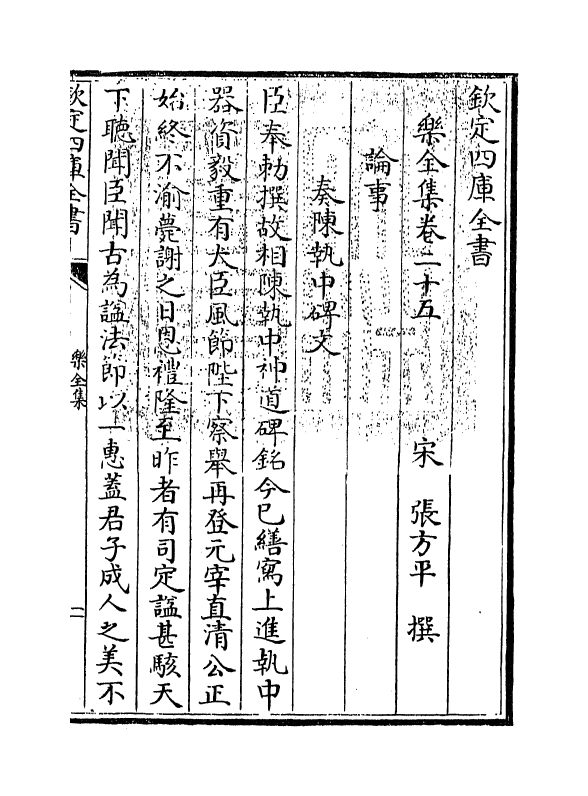 欽定四庫全書
樂全集卷二十五　宋　張方平　撰
論事
奏陳執中碑文
臣奉勅撰故相陳執中神道碑銘今已繕寫上進執中
器資毅重有大臣風節陛下察舉再登元宰直清公正
始終不渝薨謝之日恩禮隆至昨者有司定諡甚駭天
下聽聞臣聞古為諡法節以一惠蓋君子成人之美不
欽定四庫全書
樂全集